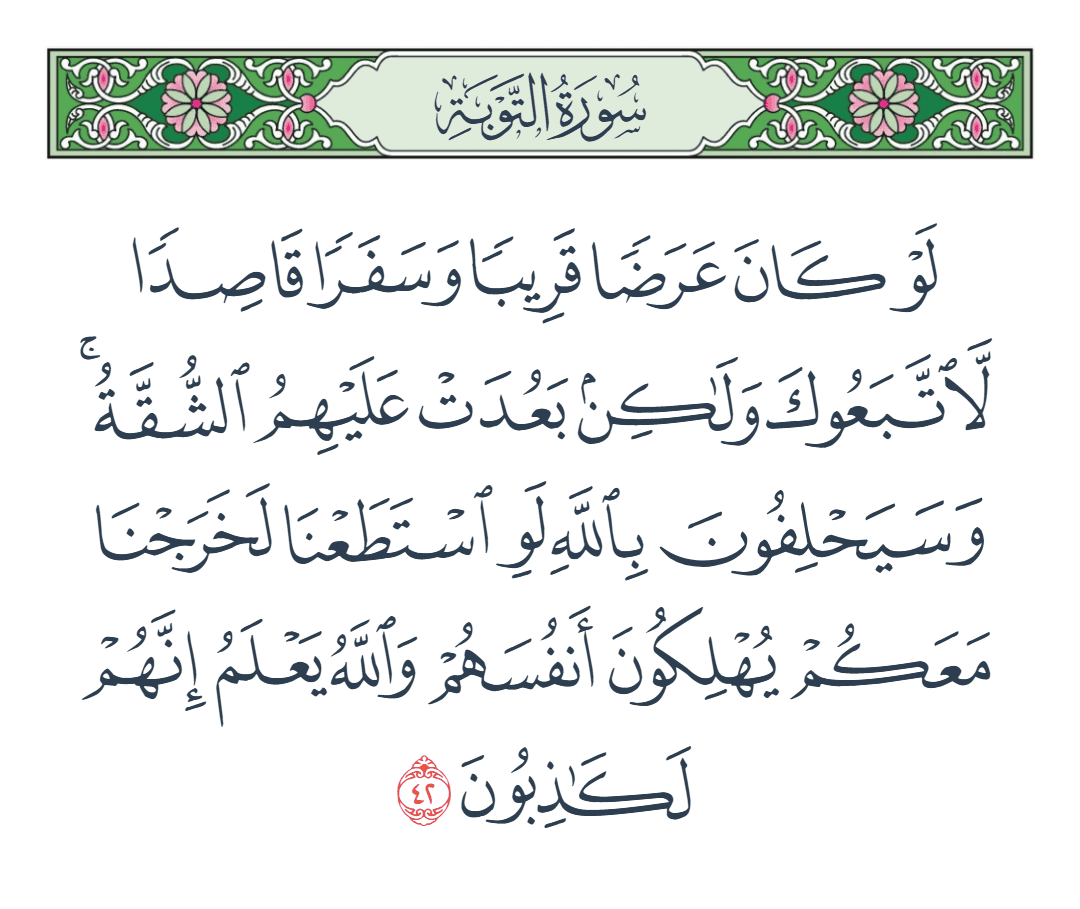 سُورَةُ التَّوْبَةِ
لَوْ كَانَ عَرَضًا قَرِيبًا وَسَفَرًا قَاصِدًا
لَّٱتَّبَعُوكَ وَلَٰكِنۢ بَعُدَتْ عَلَيْهِمُ ٱلشُّقَّةُ ۚ
وَسَيَحْلِفُونَ بِٱللَّهِ لَوِ ٱسْتَطَعْنَا لَخَرَجْنَا
مَعَكُمْ يُهْلِكُونَ أَنفُسَهُمْ وَٱللَّهُ يَعْلَمُ إِنَّهُمْ
لَكَٰذِبُونَ ٤٢